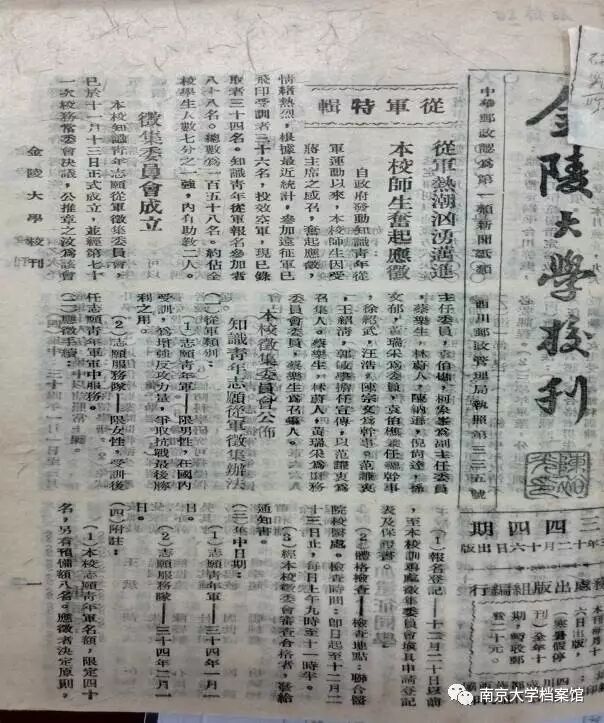 金陵大學校刊
中華郵政認為第一類新聞紙類
西川郵政管理局執照第三二五號
三四四期
年十二月十六日出版
處出版組編行
從軍特輯
從軍熱潮洶湧邁進
本校師生奮起應徵
自政府發動知識青年從
軍運動以來，本校師生因受
蔣主席之感召，奮起應徵，
情緒熱烈，根據最近統計，參加遠征軍已
飛印受訓者三十六名，投效空軍，現已錄
取者三十四名。知識青年從軍報名參加者
八十八名。總數為一百五十八名。約佔全
校學生人數七分之一強。內有助教二人。
徵集委員會成立
本校知識青年志願從軍徵集委員會，
已於十一月十三日正式成立，並經第七十
一次校務常委會決議，公推章之汶為該會
主任委員，袁伯樵，柯象峯為副主任委員
，蔡樂生，林蔚人，陳納遜，倪尚達，孫
文郁，黃瑞采為委員，袁伯樵兼任總幹事
，徐紹武，汪浩，陳宗文為幹事。范謙衷
，王紹清，郭敏學擔任宣傳，以范謙衷為
召集人。蔡樂生，林蔚人，黃瑞采為財務
委員會委員，蔡樂生為召集人。
本校徵集委員會公佈
知識青年志願從軍徵集辦法
(一)從軍類別：
(1)志願青年軍——限男性，在國內
受訓，為增強反攻力量，爭取抗戰最後勝
利之用。
(2)志願服務隊——限女性，受訓後
任志願青年軍軍中服務。
(二)應徵手續：
(1)報名登記——十二月二十日以前
，至本校訓導處徵集委員會填具申請登記
表及保證書。
(2)體格檢查——檢查地點：聯合醫
院校醫處。檢查時間：即日起至十二月二
十三日止，每日上午九時至十一時半。
(3)經本校徵委會審查合格者，發給
通知書。
(三)集中日期：
(1)志願青年軍——三十四年一月
日。
(2)志願服務隊——三十四年二月一
日。
(四)附註：
(1)本校志願青年軍名額，限定四十
名，另有預備額八名。應徵者決定原則，
金陵大學校刊
一
南京大学档案馆